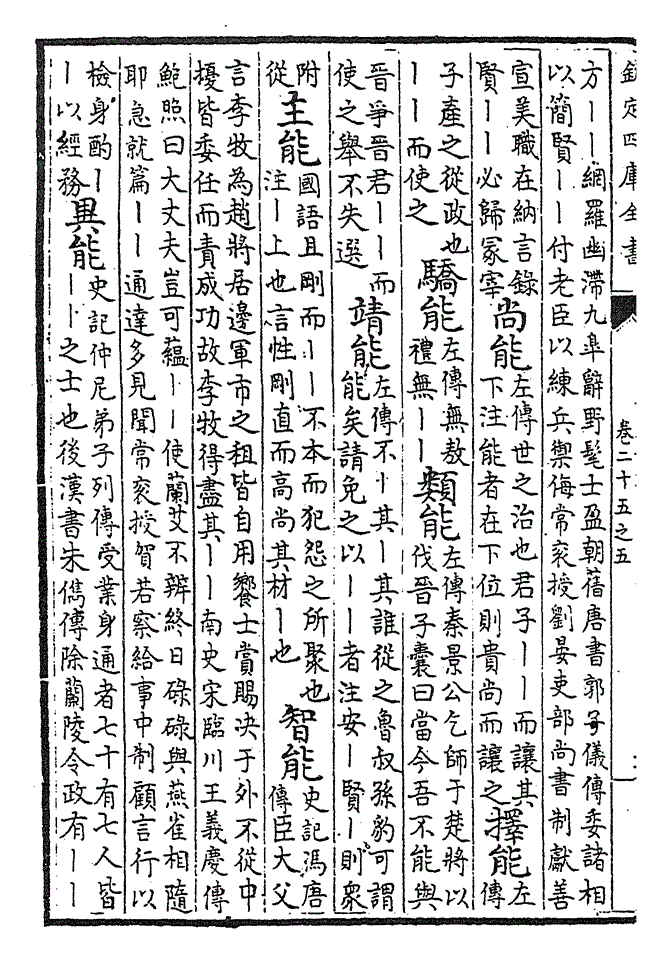 欽定四庫全書
卷二十五之五
方丨丨網羅幽滯九臯辭野髦士盈朝舊唐書郭子儀傳委諸相
以簡賢丨丨付老臣以練兵禦侮常衮授劉晏吏部尚書制獻善
宣美職在納言錄
賢丨丨必歸冡宰
尚能
左傳世之治也君子丨丨而讓其
下注能者在下位則貴尚而讓之
擇能
左傳
子產之從政也
丨丨而使之
驕能
左傳無敖
禮無丨丨
類能
左傳秦景公乞師于楚將以
伐晉子囊曰當今吾不能與
晉爭晉君丨丨而
使之舉不失選
靖能
左傳不丨其丨其誰從之魯叔孫豹可謂
能矣請免之以丨丨者注安丨賢丨則衆
附
從
主能
國語且剛而丨丨不本而犯怨之所聚也
注丨上也言性剛直而高尚其材丨也
智能
史記馮唐
傳臣大父
言李牧為趙將居邊軍市之租皆自用饗士賞賜決于外不從中
擾皆委任而責成功故李牧得盡其丨丨南史宋臨川王義慶傳
鮑照曰大丈夫豈可蘊丨丨使蘭艾不辨終日碌碌與燕雀相隨
耶急就篇丨丨通達多見聞常衮授賀若察給事中制顧言行以
檢身酌丨
丨以經務
異能
史記仲尼弟子列傳受業身通者七十有七人皆
丨丨之士也後漢書朱儁傳除蘭陵令政有丨丨